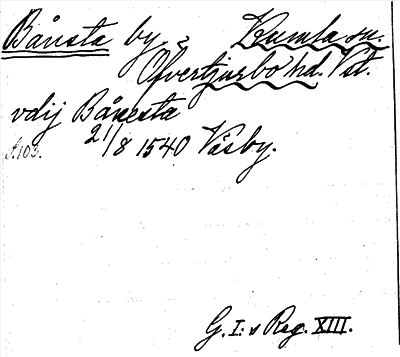 Bånsta by, Kumla sn.
Öfvertjurbo hd. Vst.
vdij Bånesta
21/8 1540 Väsby.
s. 103.
G. I:s Reg. XIII.